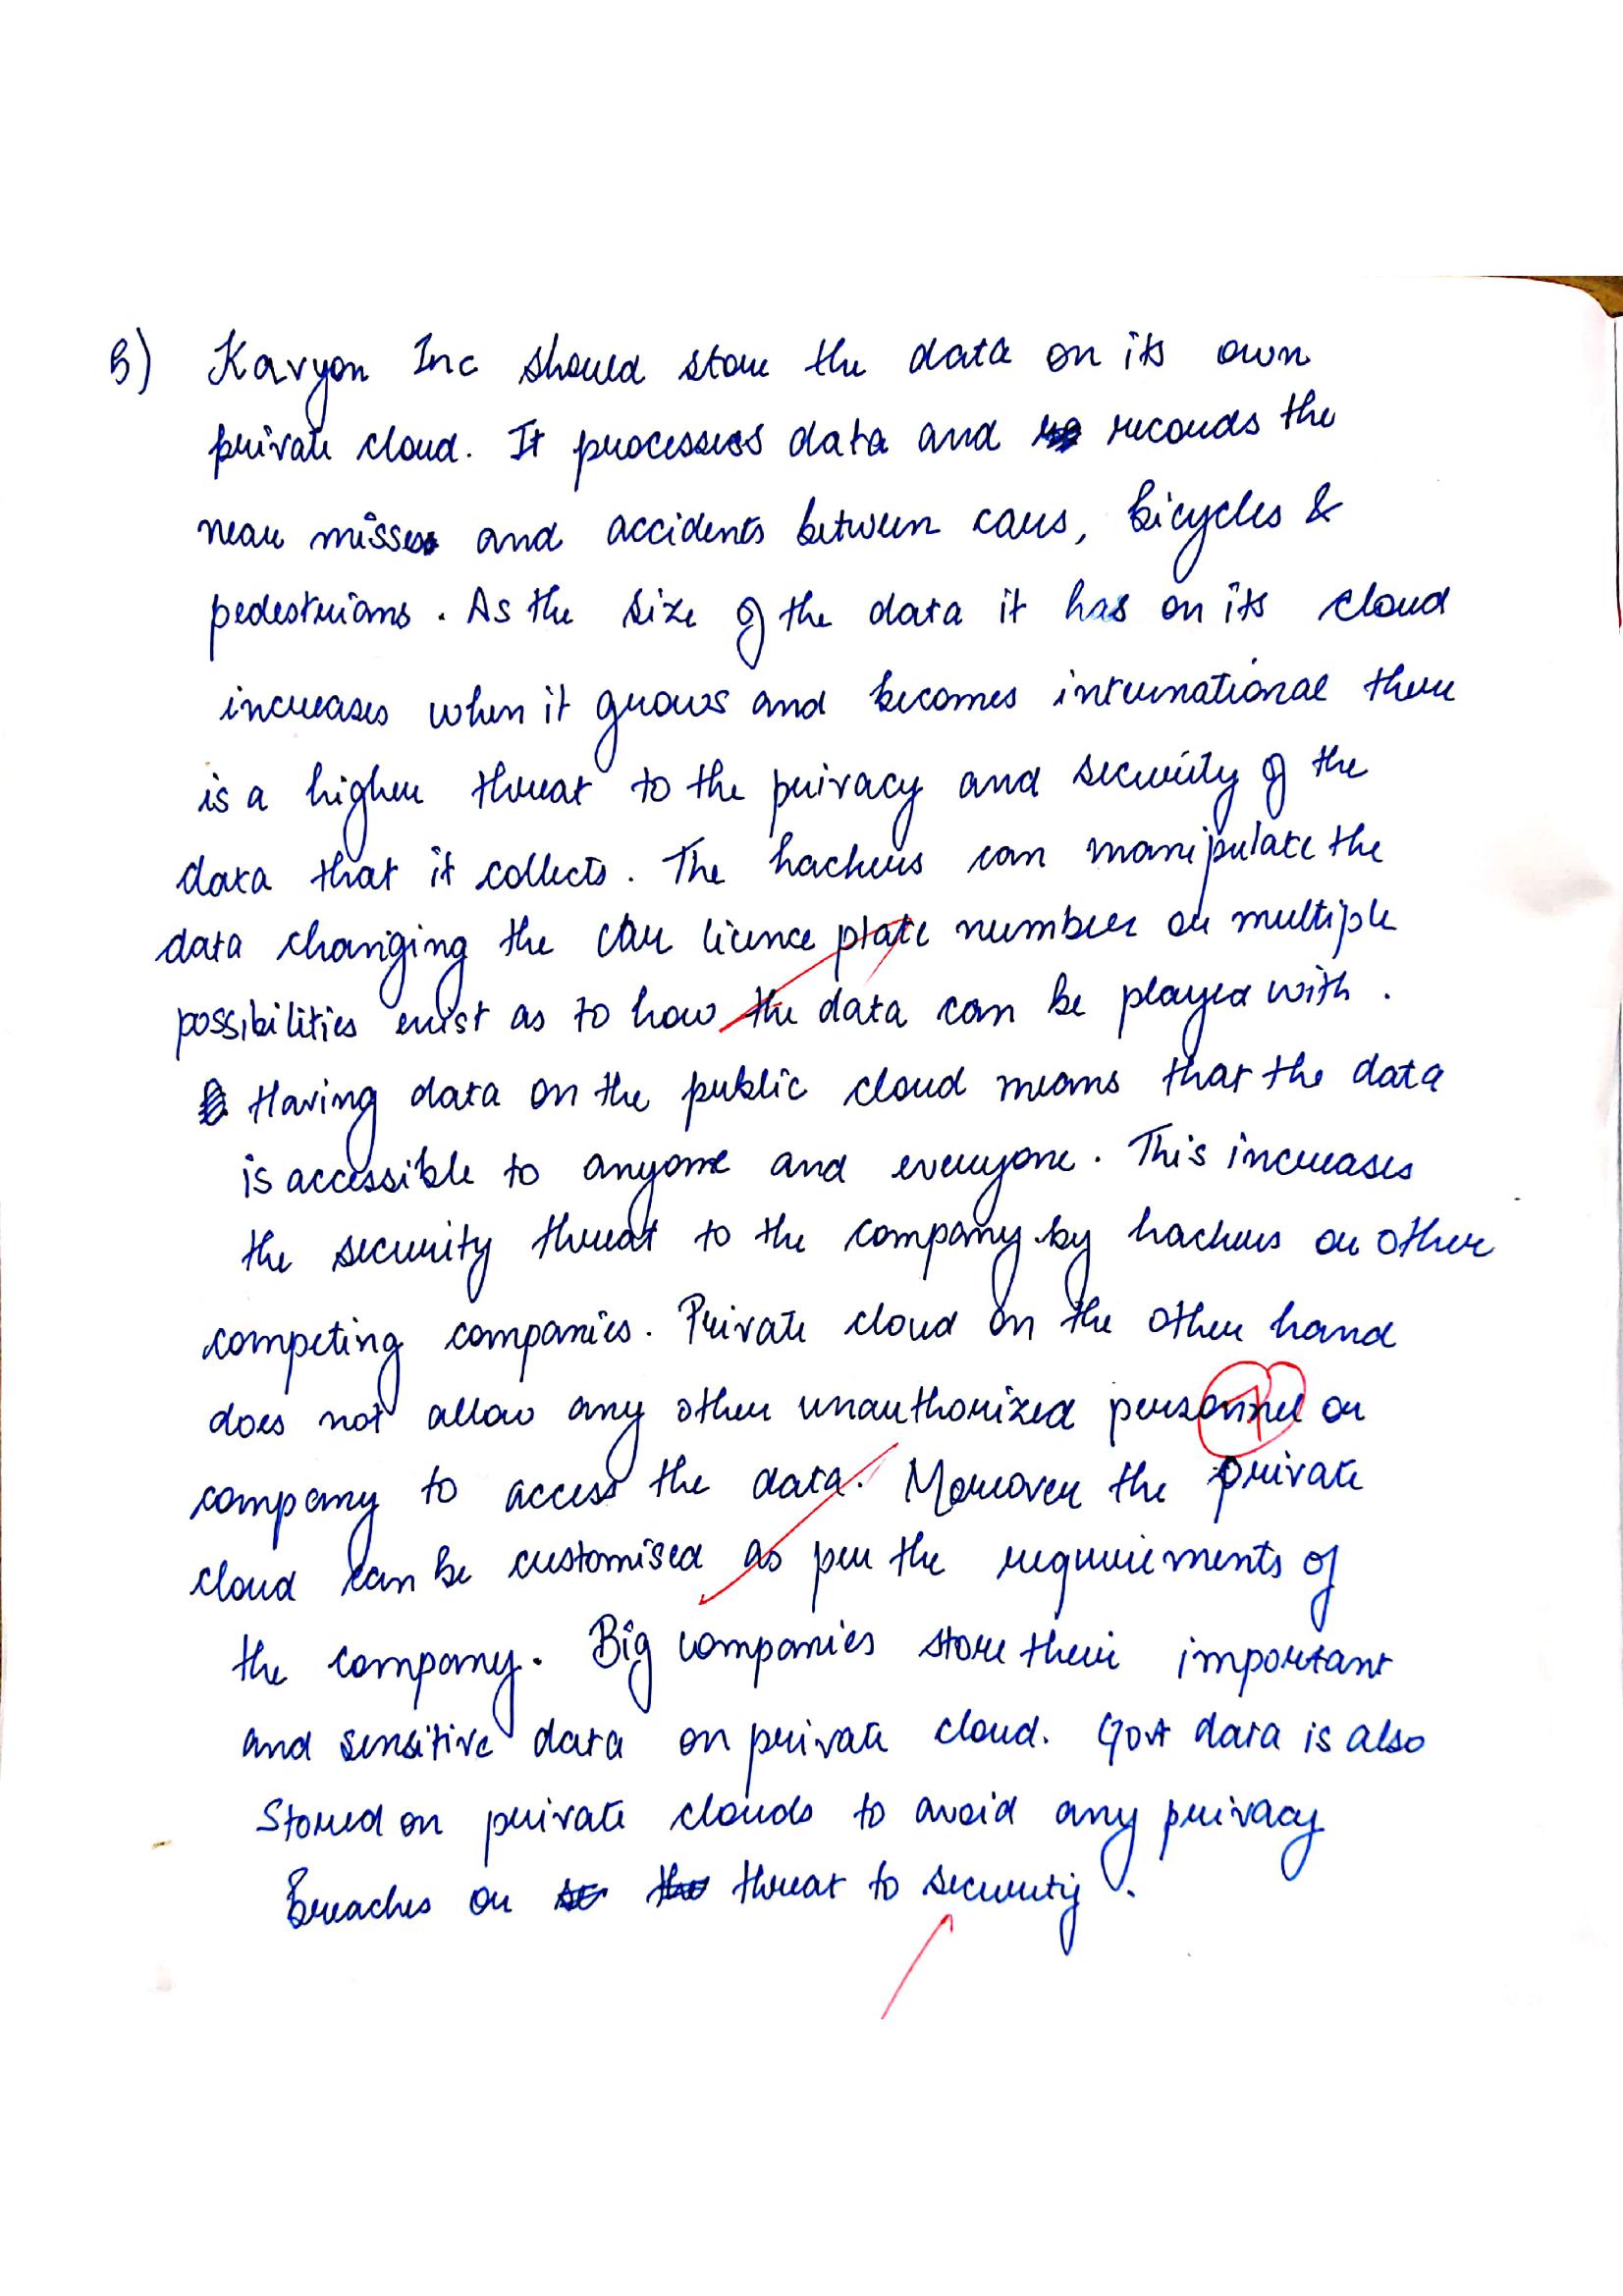 B) Karyon Inc should store the data on its own
private cloud. It processess data and records the
near misses and accidents between cars, bicycles &
pedestrians. As the size of the data it has on its cloud
increases when it grows and becomes international there
is a higher threat to the privacy and security of the
data that it collects. The hackers can manipulate the
data changing the car licence plate number or multiple
possibilities exist as to how the data can be played with.
Having data on the public cloud means that the data
is accessible to anyone and everyone. This increases
the security threat to the company by hackers or other
competing companies. Private cloud on the other hand
does not allow any other unauthorized personnel or
company to access the data. Moreover the private
cloud can be customised as per the requirements of
the company. Big companies store their important
and sensitive data on private cloud. Govt data is also
stored on private clouds to avoid any privacy
Breaches or threat to security.